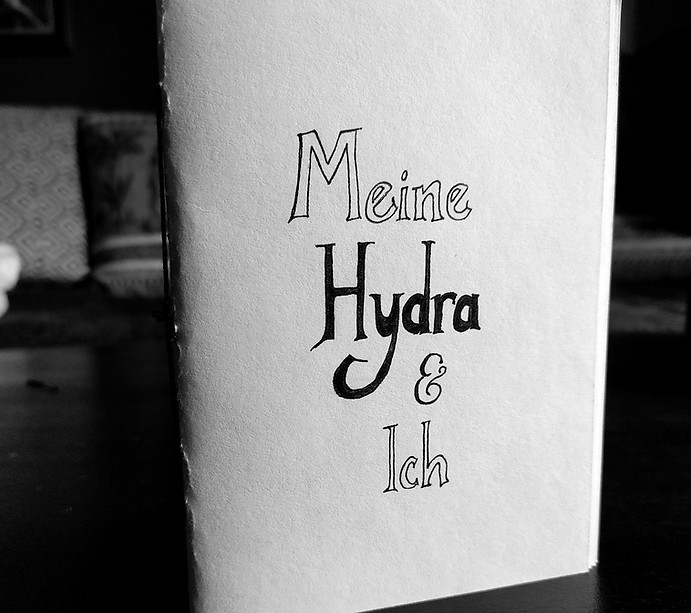 Meine
Hydra
&
Ich